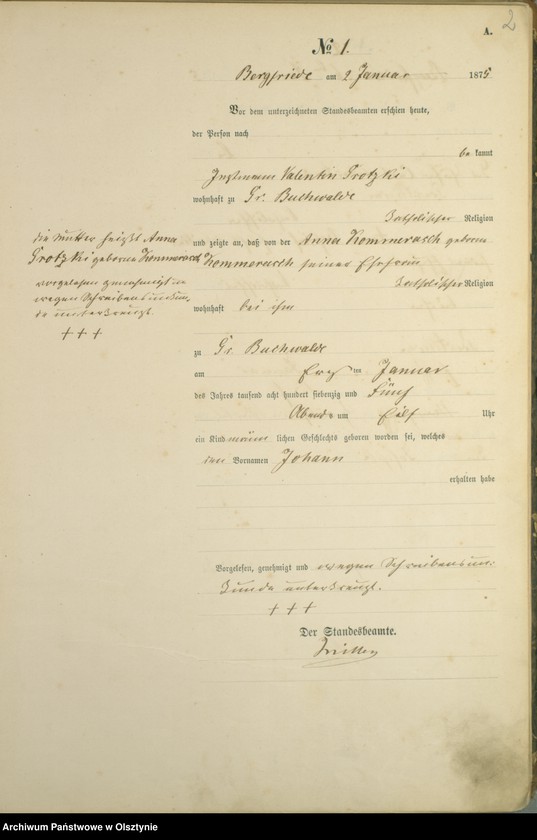 2
A.
№ 1.
Bergfriede am 2 Januar 1875
Vor dem unterzeichneten Standesbeamten erschien heute,
der Person nach
be kannt
Instmann Valentin Protzki
wohnhaft zu Gr. Buchwalde
katholischer Religion
und zeigte an, daß von der Anna Kommerasch geborne
Kommerasch seiner Ehefrau
katholischer Religion
wohnhaft bei ihm
zu Gr. Buchwalde
am Januar
des Jahres tausend acht hundert siebenzig und Fünf
Abends um Eilf Uhr
ein Kind männ lichen Geschlechts geboren worden sei, welches
den Vornamen Johann
erhalten habe
die Mutter heißt Anna
Protzki geborne Kommerasch
vorgelesen genehmigt u
wegen Schreibensunkun-
de unterkreuzt.
+ + +
Vorgelesen, genehmigt und wegen Schreibensun-
kunde unterkreuzt.
+ + +
Der Standesbeamte.
Archiwum Państwowe w Olsztynie